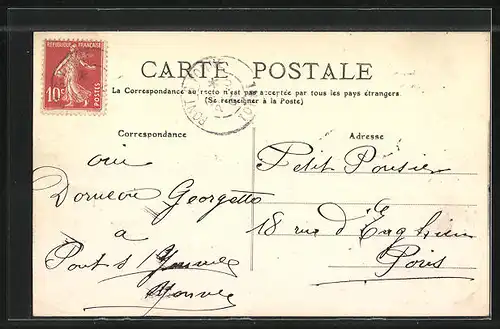 REPUBLIQUE FRANÇAISE
10c
POSTES
CARTE POSTALE
La Correspondance au recto n'est pas acceptée par tous les pays étrangers.
(Se renseigner à la Poste)
Correspondance
oui
Georgette
a
Pont s/ Yonne
Yonne
Adresse
Petit
18 rue d'Enghien
Paris